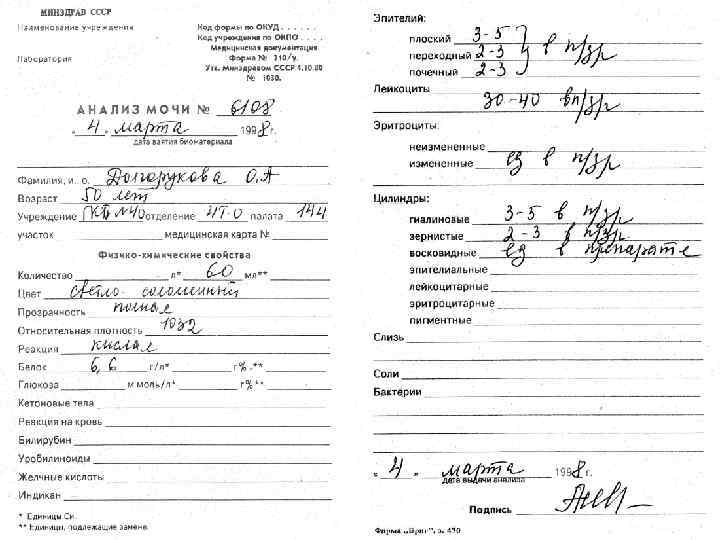 МИНЗДРАВ СССР
Наименование учреждения
Лаборатория
Код формы по ОКУД . . . . . .
Код учреждения по ОКПО . . . .
Медицинская документация
Форма № 210/у.
Утв. Минздравом СССР 4.10.80
№ 1030.
АНАЛИЗ МОЧИ № 6108
" 4 " марта 1998 г.
дата взятия биоматериала
Фамилия, и. о. Долгорукова О.А
Возраст 50 лет
Учреждение ГКБ №40 отделение 4Т-О палата 144
участок медицинская карта №
Физико-химические свойства
Количество л* 60 мл**
Цвет светло-соломенный
Прозрачность полная
Относительная плотность 1032
Реакция кислая
Белок 6,6 г/л* г% **
Глюкоза м моль/л* г% **
Кетоновые тела
Реакция на кровь
Билирубин
Уробилиноиды
Желчные кислоты
Индикан
* Единицы Си.
** Единицы, подлежащие замене.
Эпителий:
плоский 3-5
переходный 2-3 в п/зр
почечный 2-3
Лейкоциты
30-40 в п/зр
Эритроциты:
неизмененные
измененные ед в п/зр
Цилиндры:
гиалиновые 3-5 в п/зр
зернистые 2-3 в п/зр
восковидные ед в препарате
эпителиальные
лейкоцитарные
эритроцитарные
пигментные
Слизь
Соли
Бактерии
" 4 " марта 1998 г.
дата выдачи анализа
Подпись